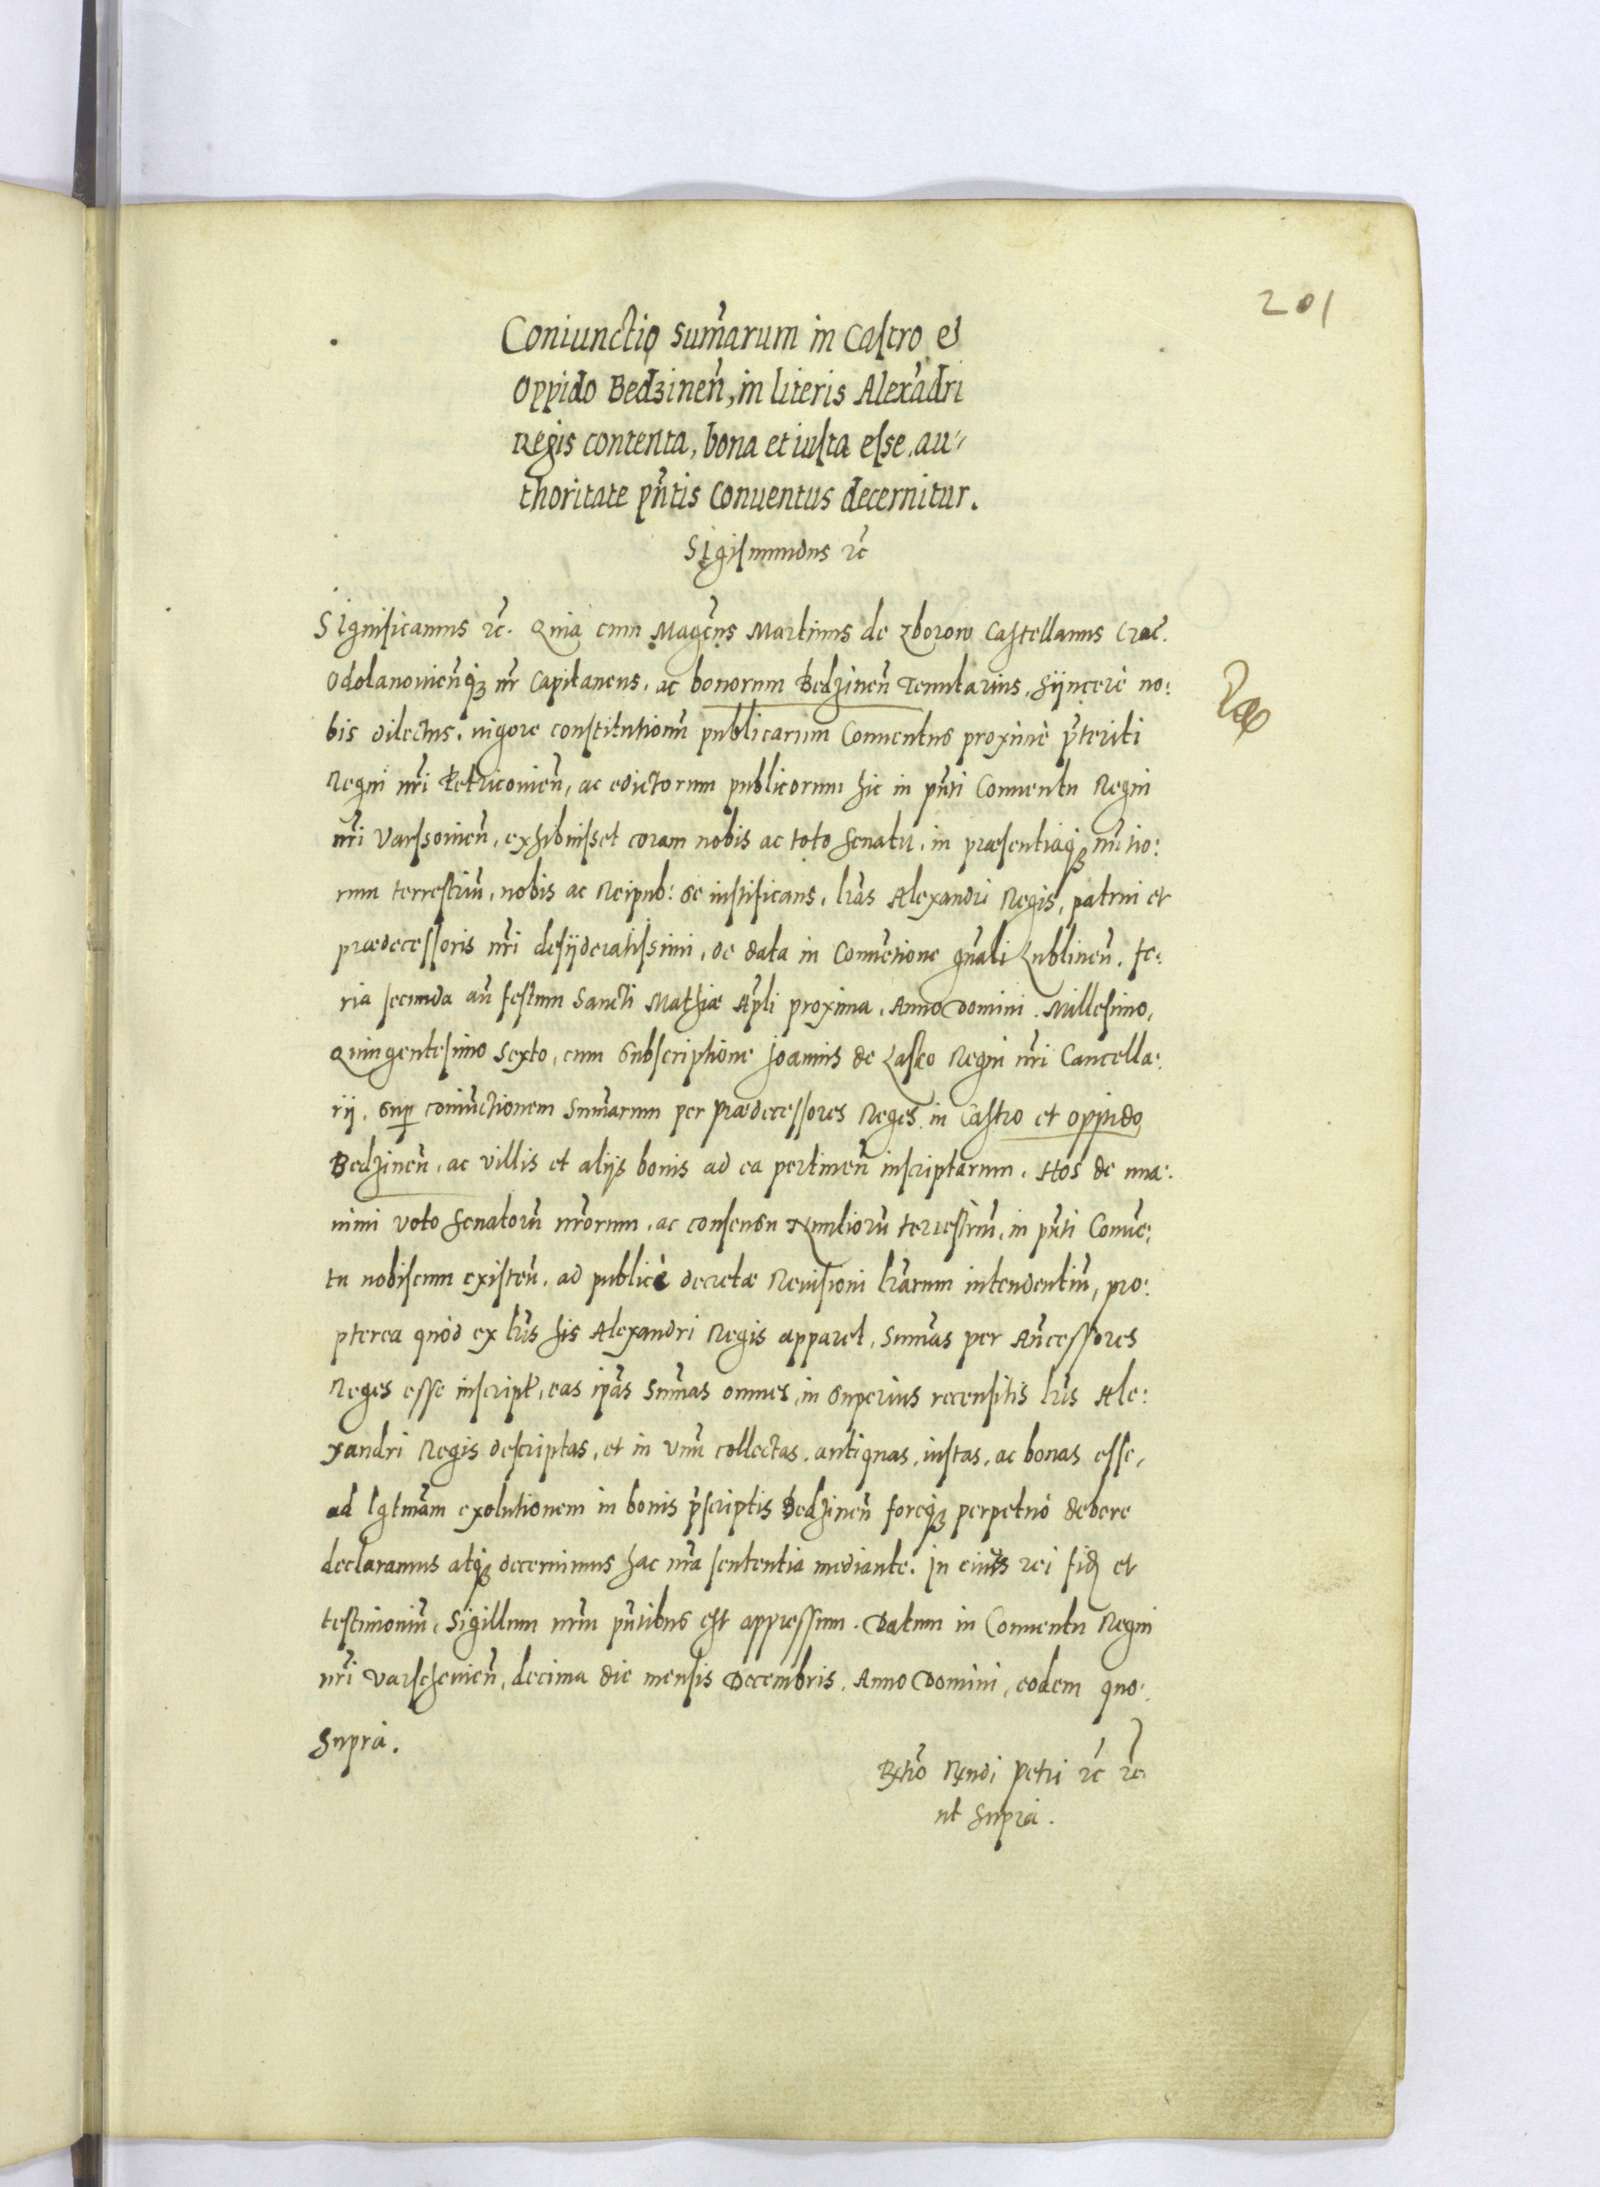 201
Coniunctio sum̃arum in Castro et
Oppido Bedzineñ, in literis Alexãdri
Regis contenta, bona et iusta esse, au⸗
thoritate pñtis Conuentus decernitur.
Sigismundus ꝛc̃
Significamus ꝛc̃. Quia cum Magc̃us Martinus de Zborow Castellanus Crac̃.
Odolanouieñqꝫ nr̃ Capitaneus, ac bonorum Bedzineñ Tenutarius, syncerè no:
bis dilectus, uigore constitutionũ publicarum Conuentus proximè p̃teriti
Regni nr̃i Petricouieñ, ac edictorum publicorum hic in pñti Conuentu Regni
nr̃i Varsouieñ, exhibuisset coram nobis ac toto senatu, in præsentiaqꝫ nũtio:
rum terrestriũ, nobis ac Reipub: se iustificans, lr̃as Alexandri Regis, patrui et
prædecessoris nr̃i desyderatissimi, de data in Conuẽtione gñali Lublineñ. fe:
ria secunda añ festum Sancti Mathiæ Ap̃li proxima, Anno Domini. Millesimo,
Quingentesimo Sexto, cum subscriptione Joannis de Lasko Regni nr̃i Cancella:
rij, sup̱ coniũctionem Sum̃arum per Prædecessores Reges in Castro et oppido
Bedzineñ, ac villis et alijs bonis ad ea pertineñ inscriptarum. Nos de una:
nimi voto Senatorũ nr̃orum, ac consensu Nuntiorũ terrestriũ, in pñti Conuẽ:
tu nobiscum existeñ, ad publicè decretæ Reuisioni lr̃arum intendentiũ, pro:
pterea quòd ex lr̃is his Alexandri Regis apparet, Sum̃as per Añcessores
Reges esse inscript̃, eas ip̃as Sum̃as omnes, in superius recensitis lr̃is Ale:
xandri Regis descriptas, et in Vnũ collectas, antiquas, iustas, ac bonas esse,
ad lgtm̃am exolutionem in bonis p̃scriptis Bedzineñ foreqꝫ perpetuò debere
declaramus atqꝫ decernimus hac nr̃a sententia mediante. In eius rei fidẽ et
testimoniũ, Sigillum nr̃m pñtibus est appressum. Datum in Conuentu Regni
nr̃i Varscheuieñ, decima die mensis Decembris. Anno Domini, eodem quo:
Suprà.
Rndi Petri ꝛc̃ ꝛc̃
ut Suprà.